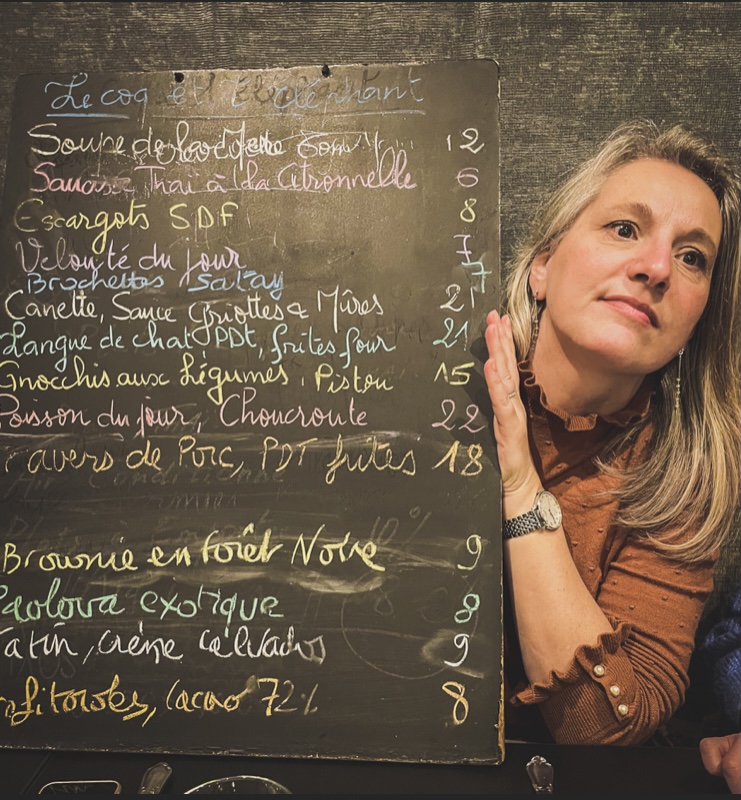 Le coq et l'éléphant
Soupe de 12
Saucisse Thaï à la Citronnelle 6
Escargots SDF 8
Velouté du jour 7
Brochettes Satay 7
Canette, Sauce Griottes & Mûres 21
Langue de chat PDt, frites four 21
Gnocchis aux Légumes, Pistou 15
Poisson du jour, Choucroute 22
avers de Porc, PDT frites 18
Brownie en Forêt Noire 9
Pavlova exotique 8
Tatin, crème Calvados 9
fitoroles, Cacao 72% 8